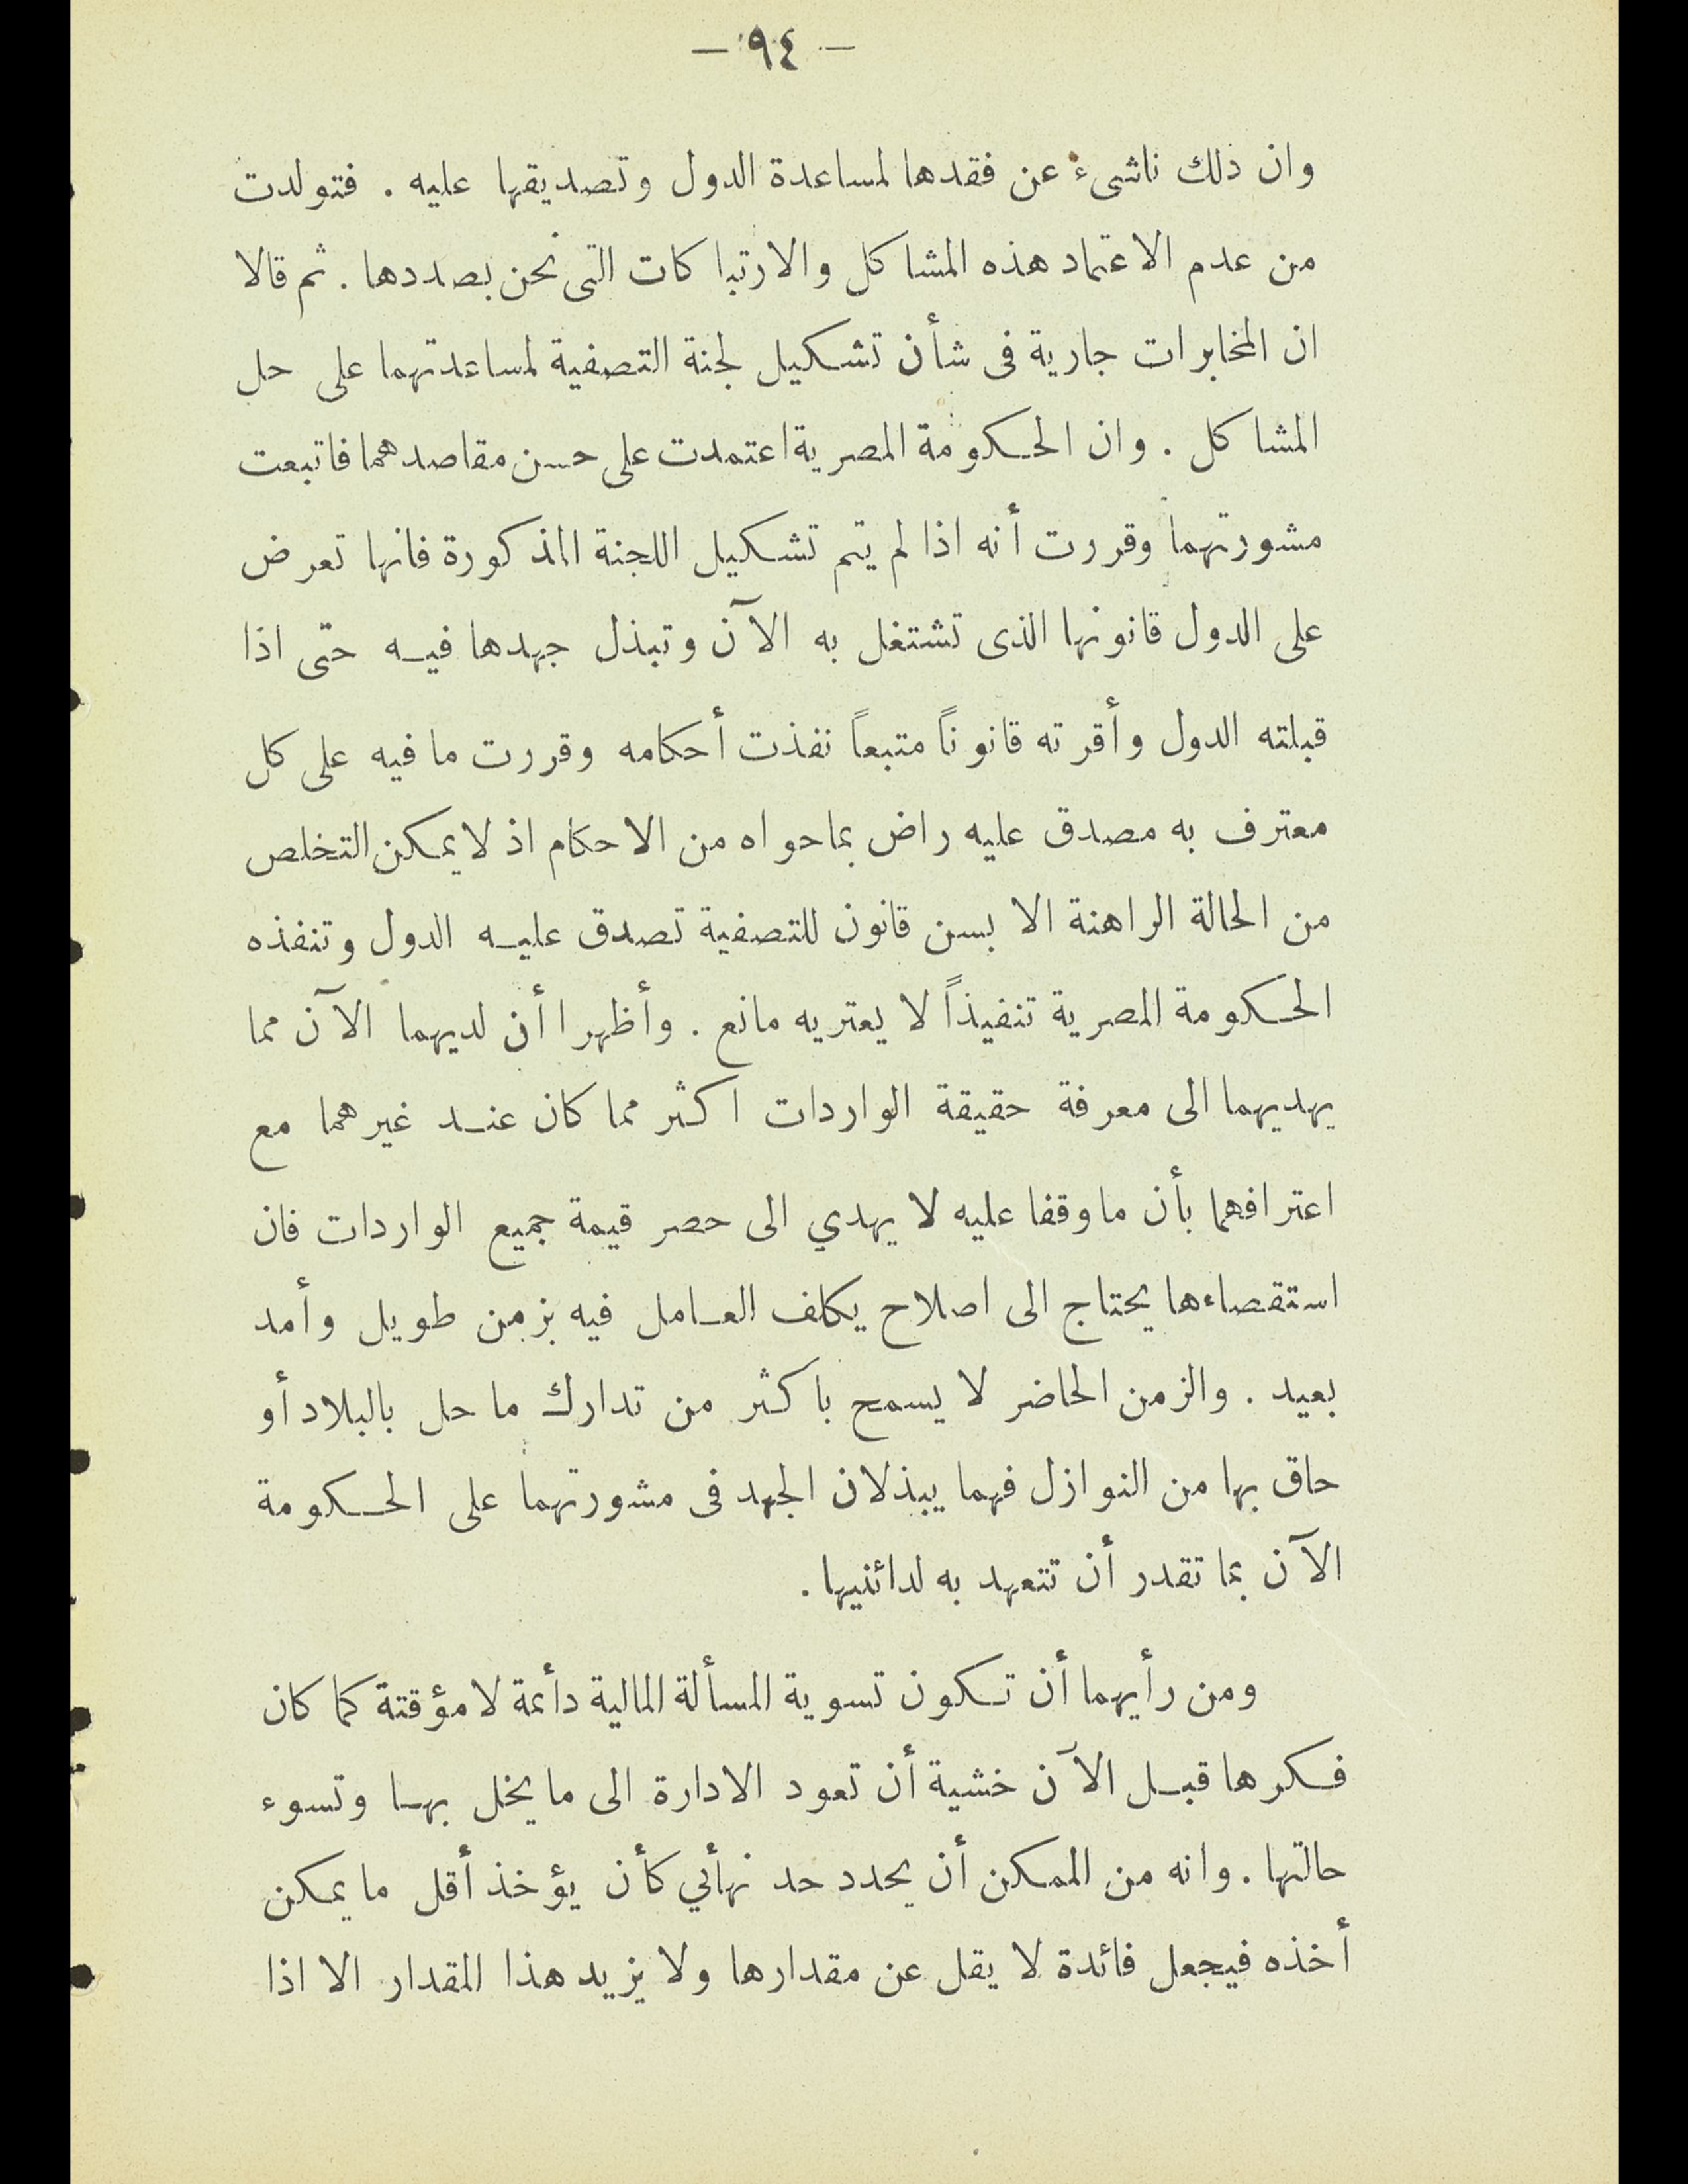 — ٩٤ —
وان ذلك ناشىء عن فقدها لمساعدة الدول وتصديقها عليه . فتولدت
من عدم الاعتماد هذه المشاكل والارتباكات التى نحن بصددها . ثم قالا
ان المخابرات جارية فى شأن تشكيل لجنة التصفية لمساعدتهما على حل
المشاكل . وان الحكومة المصرية اعتمدت على حسن مقاصدهما فاتبعت
مشورتهما وقررت أنه اذا لم يتم تشكيل اللجنة المذكورة فانها تعرض
على الدول قانونها الذى تشتغل به الآن وتبذل جهدها فيه حتى اذا
قبلته الدول وأقرته قانوناً متبعاً نفذت أحكامه وقررت ما فيه على كل
معترف به مصدق عليه راض بما حواه من الاحكام اذ لا يمكن التخلص
من الحالة الراهنة الا بسن قانون للتصفية تصدق عليه الدول وتنفذه
الحكومة المصرية تنفيذاً لا يعتريه مانع . وأظهرا أن لديهما الآن مما
يهديهما الى معرفة حقيقة الواردات اكثر مما كان عند غيرهما مع
اعترافهما بأن ما وقفا عليه لا يهدي الى حصر قيمة جميع الواردات فان
استقصاءها يحتاج الى اصلاح يكلف العامل فيه بزمن طويل وأمد
بعيد . والزمن الحاضر لا يسمح باكثر من تدارك ما حل بالبلاد أو
حاق بها من النوازل فهما يبذلان الجهد فى مشورتهما على الحكومة
الآن بما تقدر أن تتعهد به لدائنيها .
ومن رأيهما أن تكون تسوية المسألة المالية دأئمة لا مؤقتة كما كان
فكرها قبل الآن خشية أن تعود الادارة الى ما يخل بها وتسوء
حالتها . وانه من الممكن أن يحدد حد نهأئي كأن يؤخذ أقل ما يمكن
أخذه فيجعل فائدة لا يقل عن مقدارها ولا يزيد هذا المقدار الا اذا